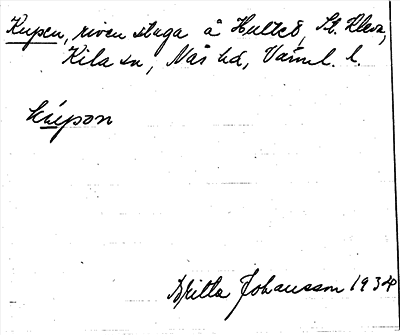 Kupen, riven stuga å Hultet, St. Kleva,
Kila sn, Näs hd, Värml. l.
kúpon
Britta Johansson 1934